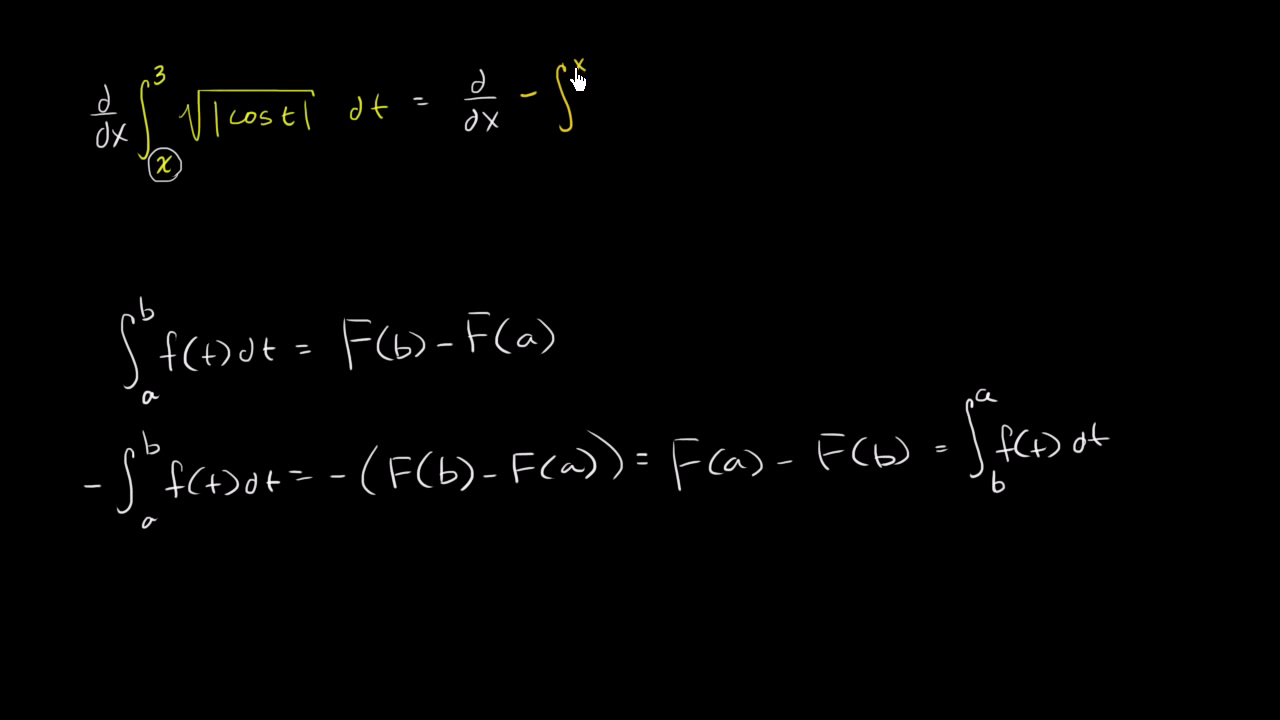 d/dx ∫_x^3 √|cos t| dt = d/dx - ∫^x
∫_a^b f(t) dt = F(b) - F(a)
- ∫_a^b f(t) dt = - (F(b) - F(a)) = F(a) - F(b) = ∫_b^a f(t) dt